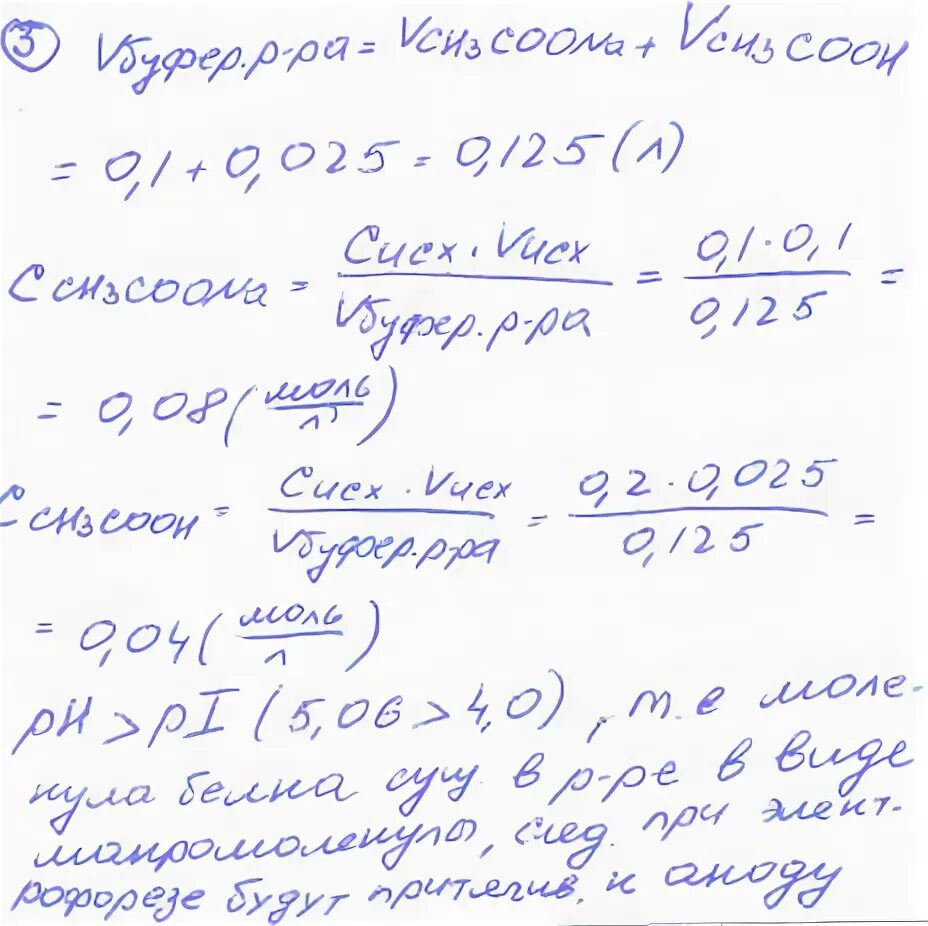 3 Vбуфер.р-ра = VCH3COONa + VCH3COOH
= 0,1 + 0,025 = 0,125 (л)
C CH3COONa = Cисх · Vисх / Vбуфер.р-ра = 0,1 · 0,1 / 0,125 =
= 0,08 (моль/л)
C CH3COOH = Cисх · Vисх / Vбуфер.р-ра = 0,2 · 0,025 / 0,125 =
= 0,04 (моль/л)
pH > pI (5,06 > 4,0), т.е моле-
кула белка сущ. в р-ре в виде
макромолекулы, след. при элект-
рофорезе будут притягив. к аноду